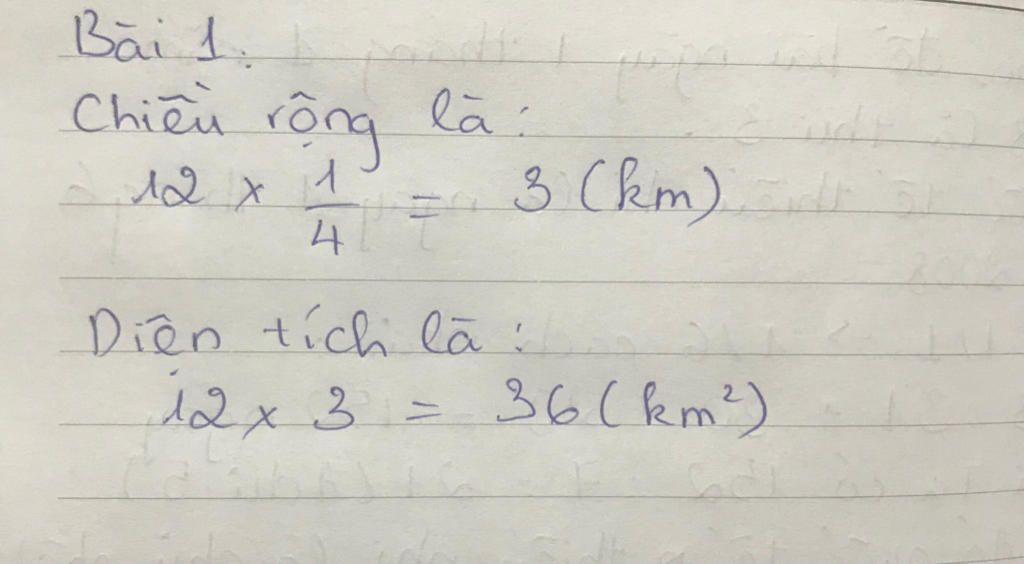 Bài 1:
Chiều rộng là:
12 x 1/4 = 3 (km)
Diện tích là:
12 x 3 = 36 (km²)